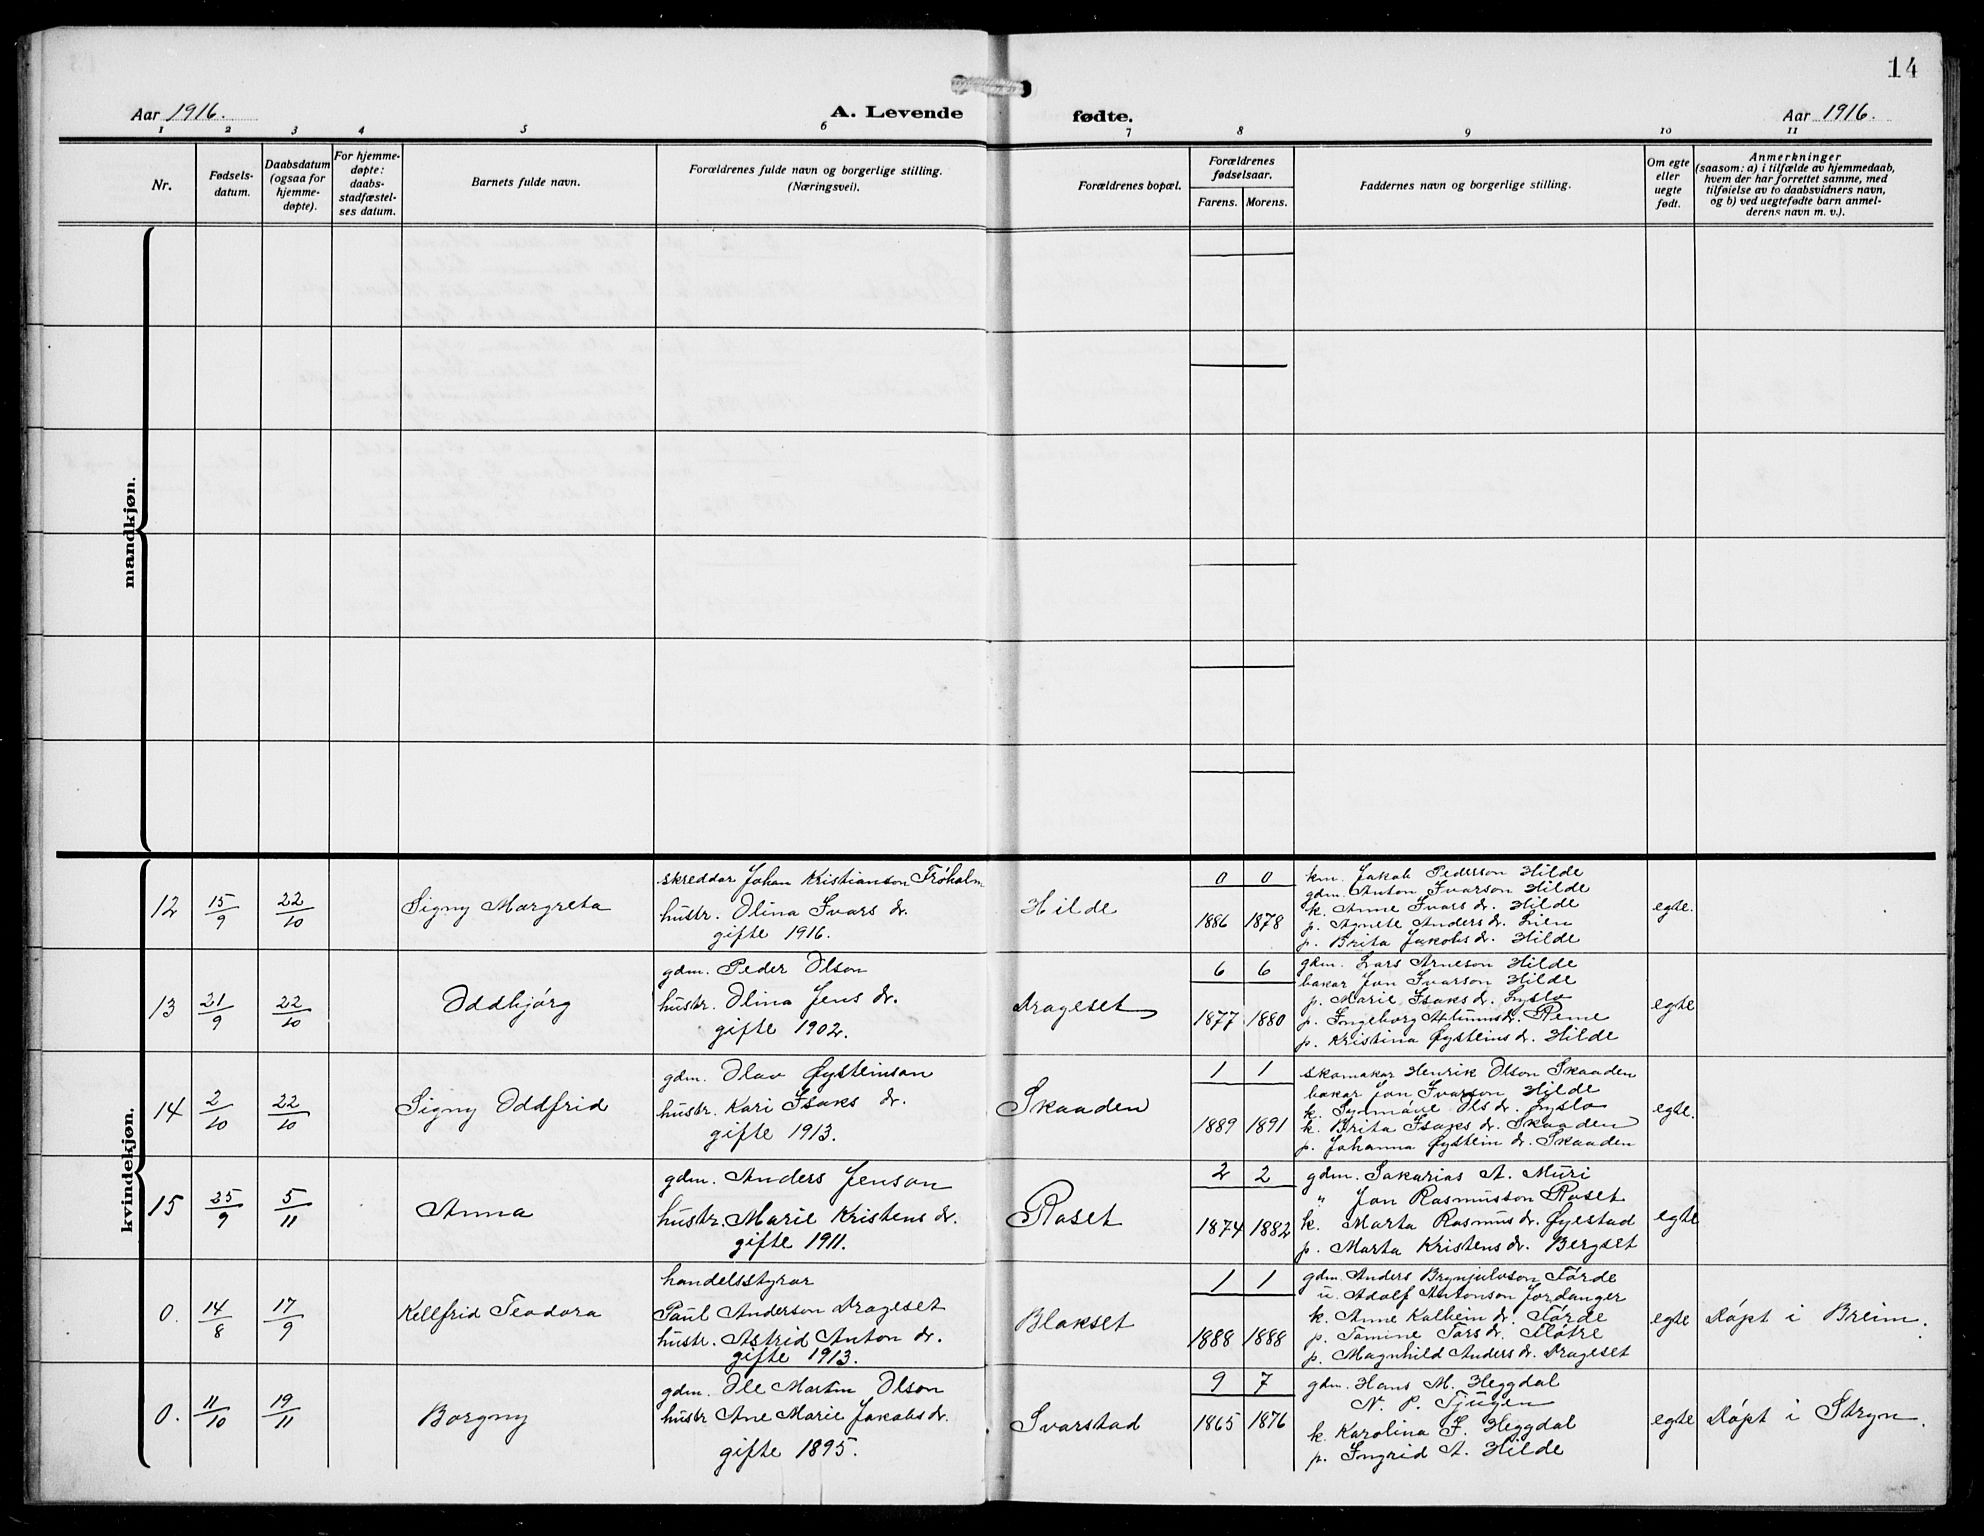 14
Aar 1916. A. Levende fødte. Aar 1916.
1 2 3 4 5 6 7 8 9 10 11
Nr.
Fødsels-
datum.
Daabsdatum
(ogsaa for
hjemme-
døpte).
For hjemme-
døpte:
daabs-
stadfæstel-
ses datum.
Barnets fulde navn.
Forældrenes fulde navn og borgerlige stilling.
(Næringsvei).
Forældrenes bopæl.
Forældrenes
fødselsaar.
Farens. Morens.
Faddernes navn og borgerlige stilling.
Om egte
eller
uegte
født.
Anmerkninger
(saasom: a) i tilfælde av hjemmedaab,
hvem der har forrettet samme, med
tilføielse av to daabsvidners navn,
og b) ved uegtefødte barn anmel-
derens navn m. v.).
mandkjøn.
kvindekjøn.
12 15/9 22/10 Signy Margreta
skreddar Johan Kristianson Trøholm
hustr. Olina Ivars dr.
gifte 1916.
Hilde
0 0
1886 1878
km. Jakob Pederson Hilde
gdm. Anton Ivarson Hilde
k. Anne Ivars dr. Hilde
p. Agnete Anders dr. Lien
p. Brita Jakobs dr. Hilde
egte.
13 21/9 22/10 Oddbjørg
gdm. Peder Olson
hustr. Olina Jens dr.
gifte 1902.
Drageset
6 6
1877 1880
gdm. Lars Arneson Hilde
bakar Jon Ivarson Hilde
p. Marie Isaks dr. Lyslo
p. Ingeborg dr. Reme
p. Kristina Øysteins dr. Hilde
egte
14 2/10 22/10 Signy Oddfrid
gdm. Olav Øysteinson
hustr. Kari Isaks dr.
gifte 1913.
Skaaden
1 1
1889 1891
skomakar Henrik Olson Skaaden
bakar Jon Ivarson Hilde
k. Synnøve Ols dr. Lyslo
k. Brita Isaks dr. Skaaden
p. Johanna Øystein dr. Skaaden
egte.
15 25/9 5/11 Anna
gdm. Anders Jenson
hustr. Marie Kristens dr.
gifte 1911.
Roset
2 2
1874 1882
gdm. Sakarias A. Muri
" Jon Rasmusson Roset
k. Marta Rasmus dr. Øyestad
p. Marta Kristens dr. Bergset
egte
0. 14/8 17/9 Kellfrid Teodora
handelsstyrar
Paul Anderson Drageset
hustr. Astrid Anton dr.
gifte 1913.
Blakset
1 1
1888 1888
gdm. Anders Brynjulvson Førde
u. Adolf Antonson Jordanger
k. Anne Kolbein dr. Førde
p. Tomine Tors dr. Fløtre
p. Magnhild Anders dr. Drageset
egte
Døpt i Breim.
0. 11/10 19/11 Borgny
gdm. Ole Martin Olson
hustr Ane Marie Jakobs dr.
gifte 1895.
Svarstad
9 7
1865 1876
gdm. Hans M. Heggdal
N. P. Tjugen
k. Karolina F. Heggdal
p. Ingrid A. Hilde
egte
Døpt i Stryn.